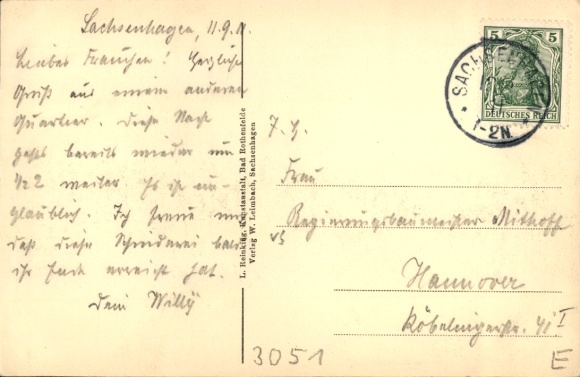 Sachsenhagen, 11.9.11.
Liebes Frauchen! Herzliche
Gruß aus einem anderen
Quartier. Diese Nacht
gehts bereits wieder um
1/2 2 weiter. Es ist un-
glaublich. Ich freue mich
daß diese Schinderei bald
ihr Ende erreicht hat.
Dein Willy
L. Reinking, Kunstanstalt, Bad Rothenfelde
Verlag W. Leimbach, Sachsenhagen
5 5
DEUTSCHES REICH
SACHSENHAGEN
1-2N
Frau
Regierungsbaumeister Mithoff
Hannover
Köbelingerstr. 41 I
3051
E